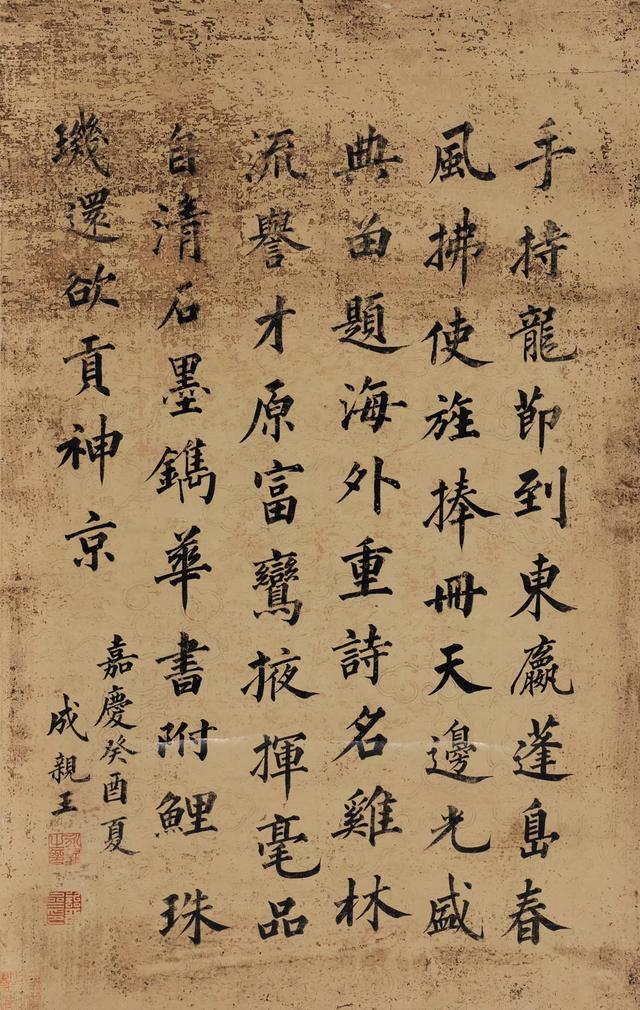 手持龍節到東瀛蓬島春
風拂使旌捧冊天邊光盛
典留題海外重詩名雞林
流譽才原富鸞掖揮毫品
自清石墨鐫華書附鯉珠
璣還欲貢神京
嘉慶癸酉夏
成親王